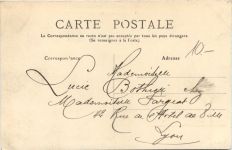 CARTE POSTALE
La Correspondance au recto n'est pas acceptée par tous les pays étrangers
(Se renseigner à la Poste)
Correspondance
Adresse
10-
Mademoiselle
Lucie
Mademoiselle
Rue de l'Hôtel de Ville
Lyon